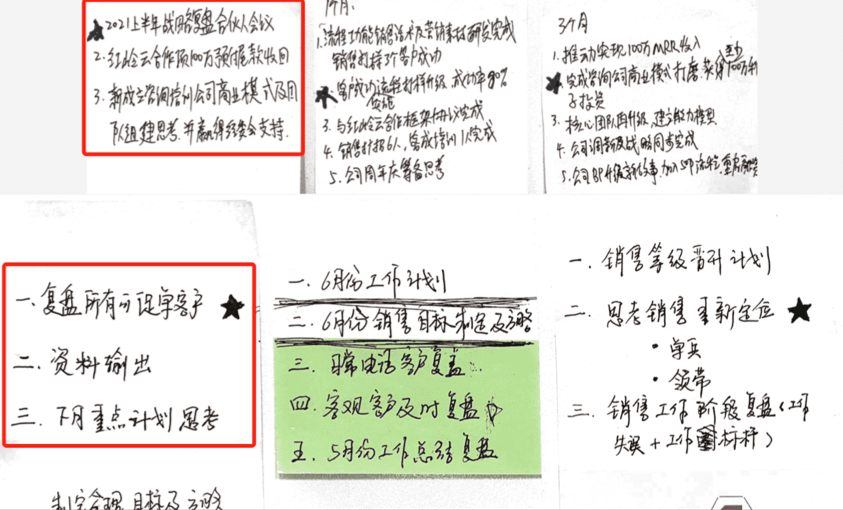 ★2021上半年战略复盘合伙人会议
2.红岭云合作项100万预付尾款收回
3.新成立咨询培训公司商业模式及团
队组建思考.并赢得经委会支持.
1个月:
1.流程功能销售话术及营销素材研发完成
销售打样3个客户成功
★客户成功流程打样升级,成功率80%
实施
3.与红岭云合作框架协议完成
4.销售打招6人,完成培训1次完成
5.公司周年庆筹备思考
3个月
1.推动实现100万MRR收入
★完成咨询公司商业模公打磨.获得至少100万种
子投资
3.核心团队再升级.建立能力模型
4.公司调薪及战略同步完成
5.公司BP升级新故事.加入SOP流程
一.复盘所有可促单客户 ★
二.资料输出
三.下月重点计划思考
制定合理目标及方略
一.6月份工作计划
二.6月份销售目标制定及方略
三.日常电话客户复盖
四.客观客户及时复盘
五.5月份工作总结复盘
一.销售等级晋升计划
二.思考销售重新定位 ★
•单兵
•领带
三.销售工作阶段复盘(工作
失误+工作标杆)